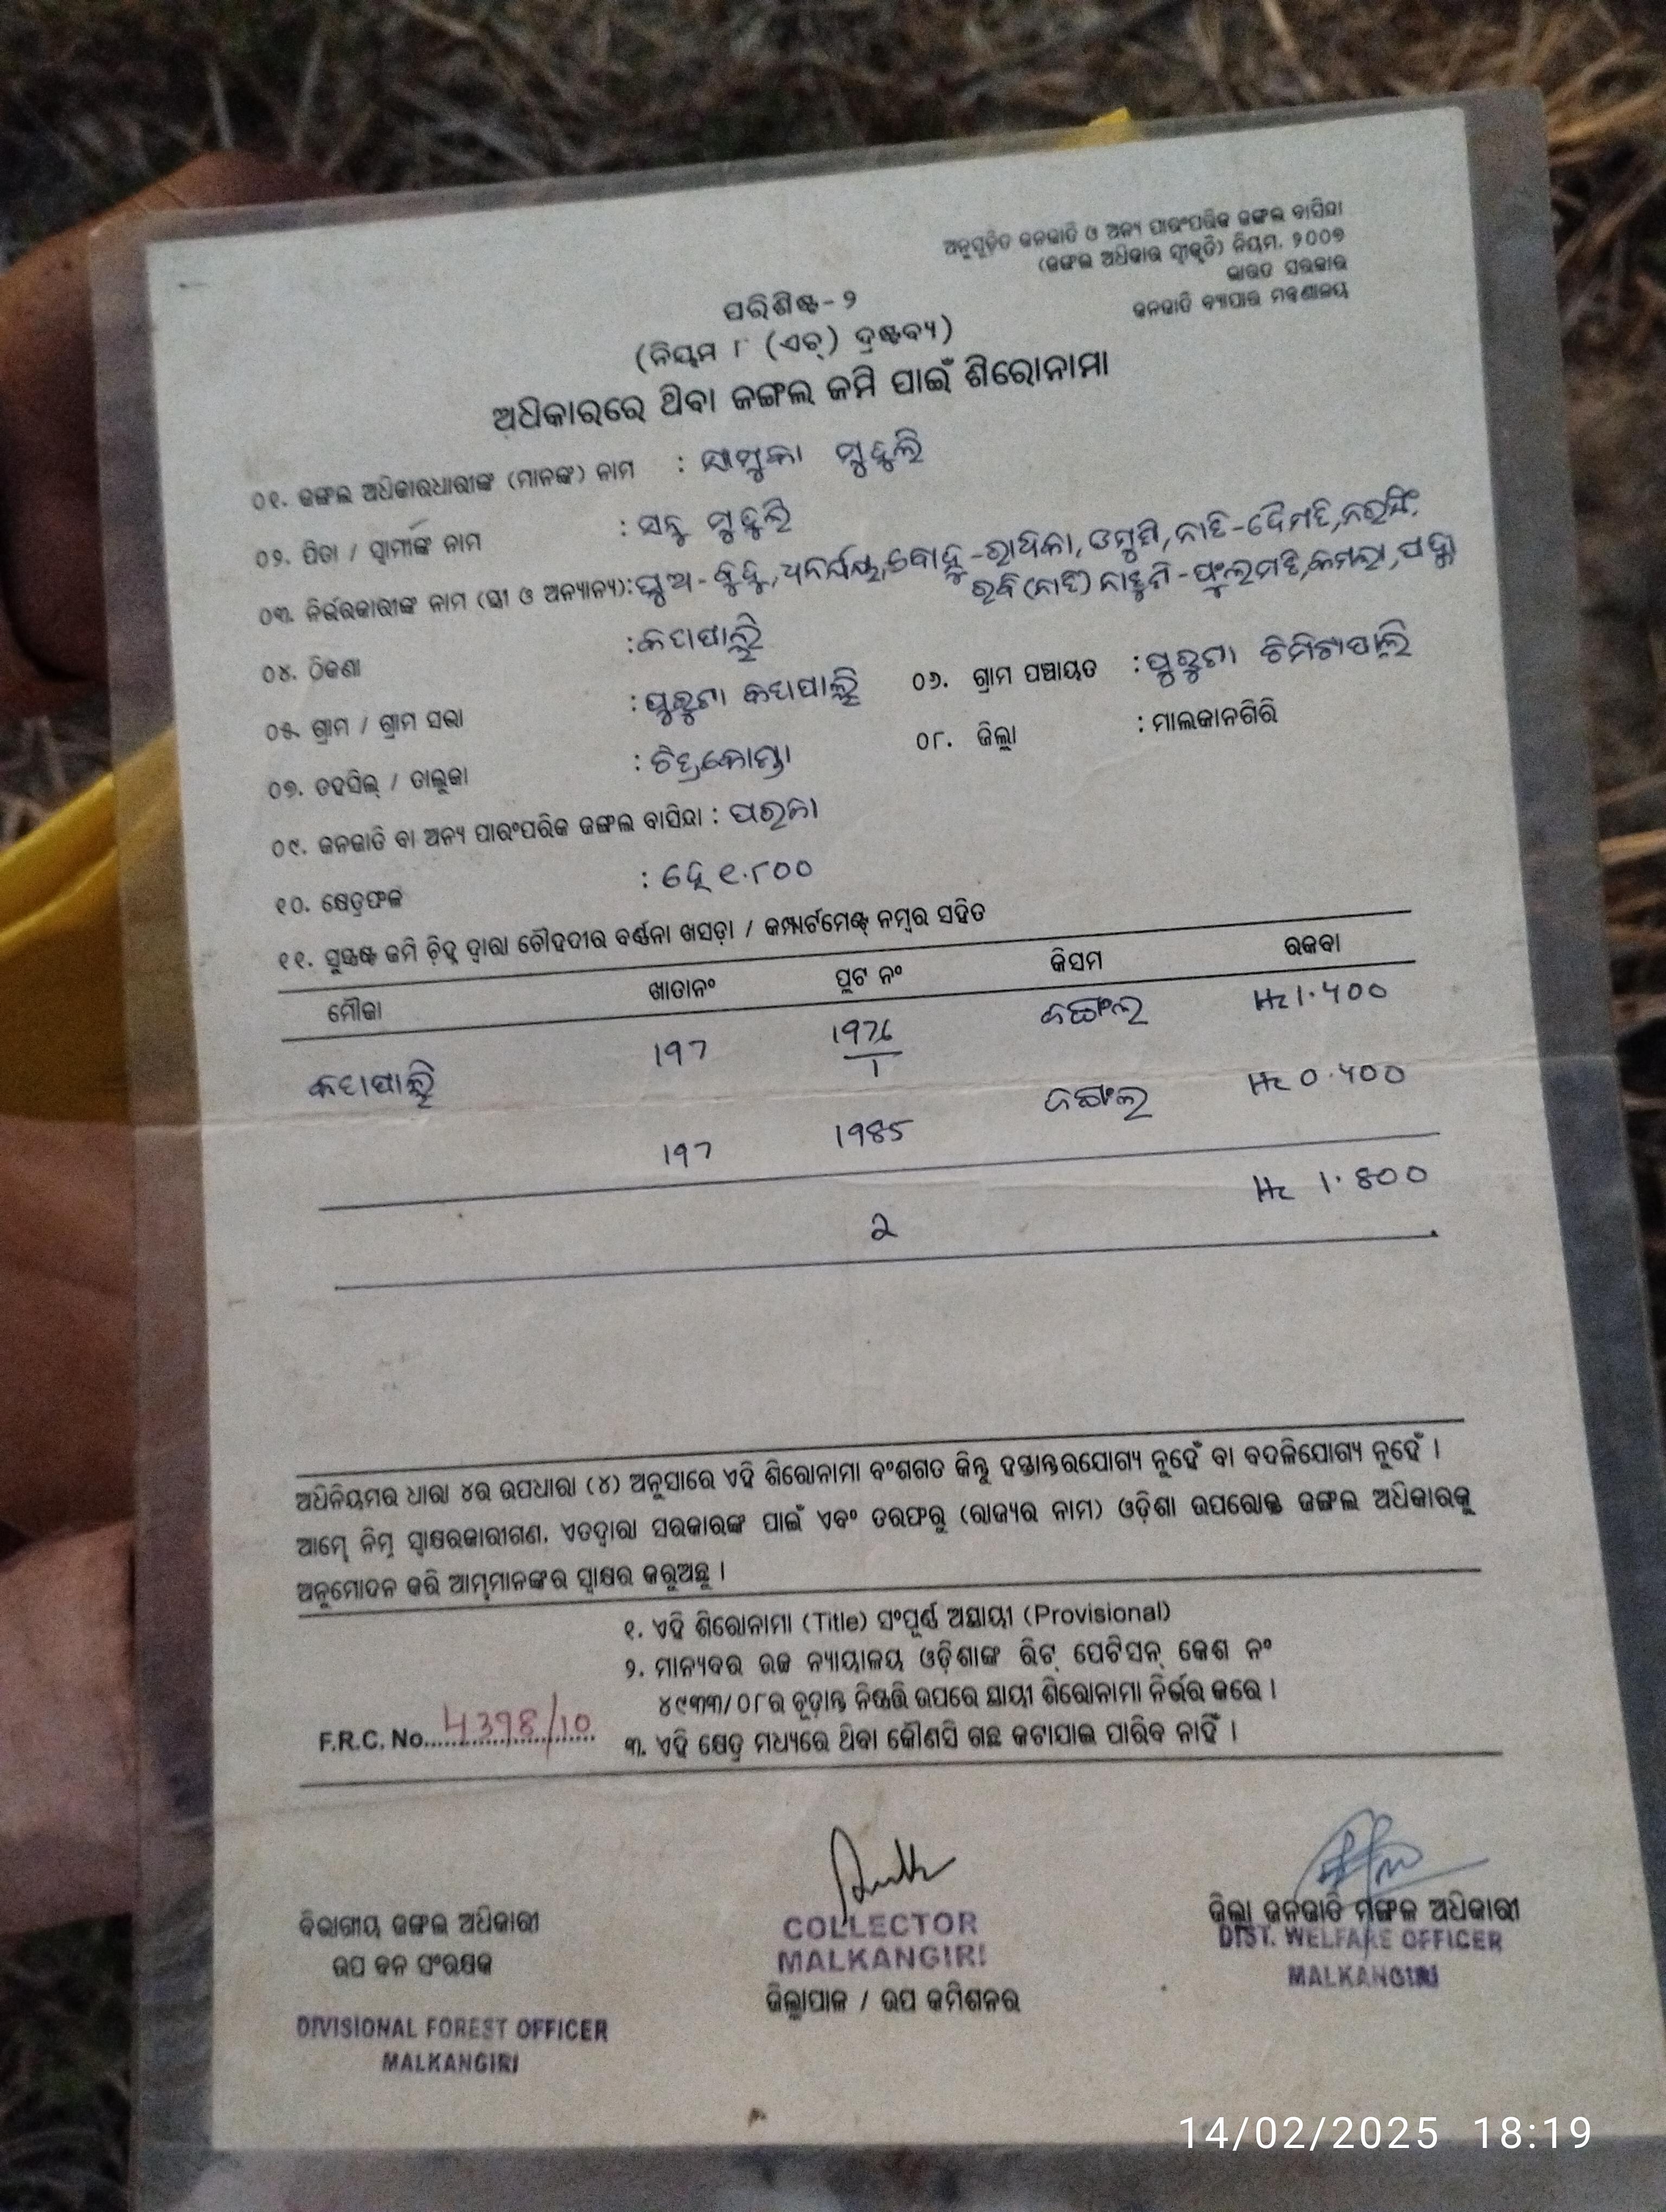 ଅନୁସୂଚିତ ଜନଜାତି ଓ ଅନ୍ୟ ପାରଂପରିକ ଜଙ୍ଗଲ ବାସିନ୍ଦା
(ଜଙ୍ଗଲ ଅଧିକାର ସ୍ୱୀକୃତି) ନିୟମ, ୨୦୦୭
ଭାରତ ସରକାର
ଜନଜାତି ବ୍ୟାପାର ମନ୍ତ୍ରଣାଳୟ
ପରିଶିଷ୍ଟ - ୨
(ନିୟମ ୮ (ଏଚ୍) ଦ୍ରଷ୍ଟବ୍ୟ)
ଅଧିକାରରେ ଥିବା ଜଙ୍ଗଲ ଜମି ପାଇଁ ଶିରୋନାମା
୦୧. ଜଙ୍ଗଲ ଅଧିକାରଧାରୀଙ୍କ (ମାନଙ୍କ) ନାମ : ସାମୁକା ମୁଦୁଲି
୦୨. ପିତା / ସ୍ୱାମୀଙ୍କ ନାମ : ସନୁ ମୁଦୁଲି
୦୩. ନିର୍ଭରକାରୀଙ୍କ ନାମ (ସ୍ତ୍ରୀ ଓ ଅନ୍ୟାନ୍ୟ): ପୁଅ - ବୋହୁ - ରାଧିକା, ନାତି - ଦୈମତି,
ରବି (ନାତି) ନାତୁନି - ଫୁଲମତି, କମଲା, ପଦ୍ମା
୦୪. ଠିକଣା :
୦୫. ଗ୍ରାମ / ଗ୍ରାମ ସଭା : ୦୬. ଗ୍ରାମ ପଞ୍ଚାୟତ :
୦୭. ତହସିଲ୍ / ତାଲୁକା : ଚିତ୍ରକୋଣ୍ଡା ୦୮. ଜିଲ୍ଲା : ମାଲକାନଗିରି
୦୯. ଜନଜାତି ବା ଅନ୍ୟ ପାରଂପରିକ ଜଙ୍ଗଲ ବାସିନ୍ଦା : ପରଜା
୧୦. କ୍ଷେତ୍ରଫଳ : ହେ ୧.୮୦୦
୧୧. ସୁସ୍ପଷ୍ଟ ଜମି ଚିହ୍ନ ଦ୍ୱାରା ଚୌହଦୀର ବର୍ଣ୍ଣନା ଖସଡ଼ା / କମ୍ପାର୍ଟମେଣ୍ଟ ନମ୍ବର ସହିତ
ମୌଜା ଖାତାନଂ ପ୍ଲଟ ନଂ କିସମ ରକବା
197 1976/1 ଜଙ୍ଗଲ Hc 1.400
197 1985 ଜଙ୍ଗଲ Hc 0.400
2 Hc 1.800
ଅଧିନିୟମର ଧାରା ୪ର ଉପଧାରା (୪) ଅନୁସାରେ ଏହି ଶିରୋନାମା ବଂଶଗତ କିନ୍ତୁ ହସ୍ତାନ୍ତରଯୋଗ୍ୟ ନୁହେଁ ବା ବଦଳିଯୋଗ୍ୟ ନୁହେଁ ।
ଆମ୍ଭେ ନିମ୍ନ ସ୍ୱାକ୍ଷରକାରୀଗଣ, ଏତଦ୍ୱାରା ସରକାରଙ୍କ ପାଇଁ ଏବଂ ତରଫରୁ (ରାଜ୍ୟର ନାମ) ଓଡ଼ିଶା ଉପରୋକ୍ତ ଜଙ୍ଗଲ ଅଧିକାରକୁ
ଅନୁମୋଦନ କରି ଆମ୍ଭମାନଙ୍କର ସ୍ୱାକ୍ଷର କରୁଅଛୁ ।
୧. ଏହି ଶିରୋନାମା (Title) ସଂପୂର୍ଣ୍ଣ ଅସ୍ଥାୟୀ (Provisional)
୨. ମାନ୍ୟବର ଉଚ୍ଚ ନ୍ୟାୟାଳୟ ଓଡ଼ିଶାଙ୍କ ରିଟ୍ ପେଟିସନ୍ କେଶ ନଂ
୪୯୩୩/୦୮ର ଚୂଡ଼ାନ୍ତ ନିଷ୍ପତ୍ତି ଉପରେ ସ୍ଥାୟୀ ଶିରୋନାମା ନିର୍ଭର କରେ ।
F.R.C. No. 4398/10
୩. ଏହି କ୍ଷେତ୍ର ମଧ୍ୟରେ ଥିବା କୌଣସି ଗଛ କଟାଯାଇ ପାରିବ ନାହିଁ ।
ବିଭାଗୀୟ ଜଙ୍ଗଲ ଅଧିକାରୀ
ଉପ ବନ ସଂରକ୍ଷକ
DIVISIONAL FOREST OFFICER
MALKANGIRI
COLLECTOR
MALKANGIRI
ଜିଲ୍ଲାପାଳ / ଉପ କମିଶନର
ଜିଲ୍ଲା ଜନଜାତି ମଙ୍ଗଳ ଅଧିକାରୀ
DIST. WELFARE OFFICER
MALKANGIRI
14/02/2025 18:19